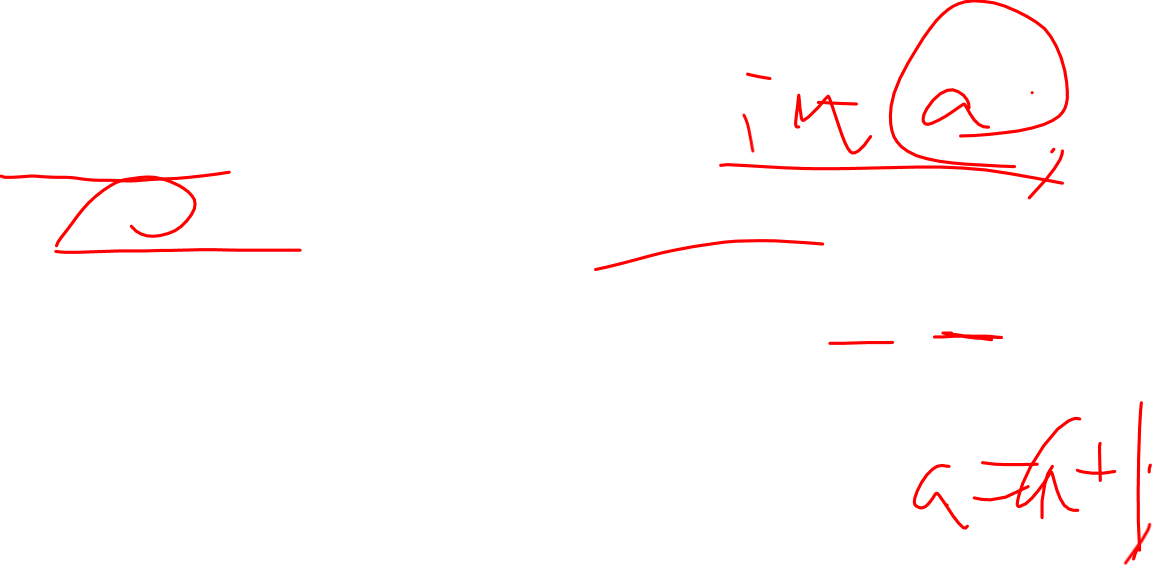 int a;
a=a+1;